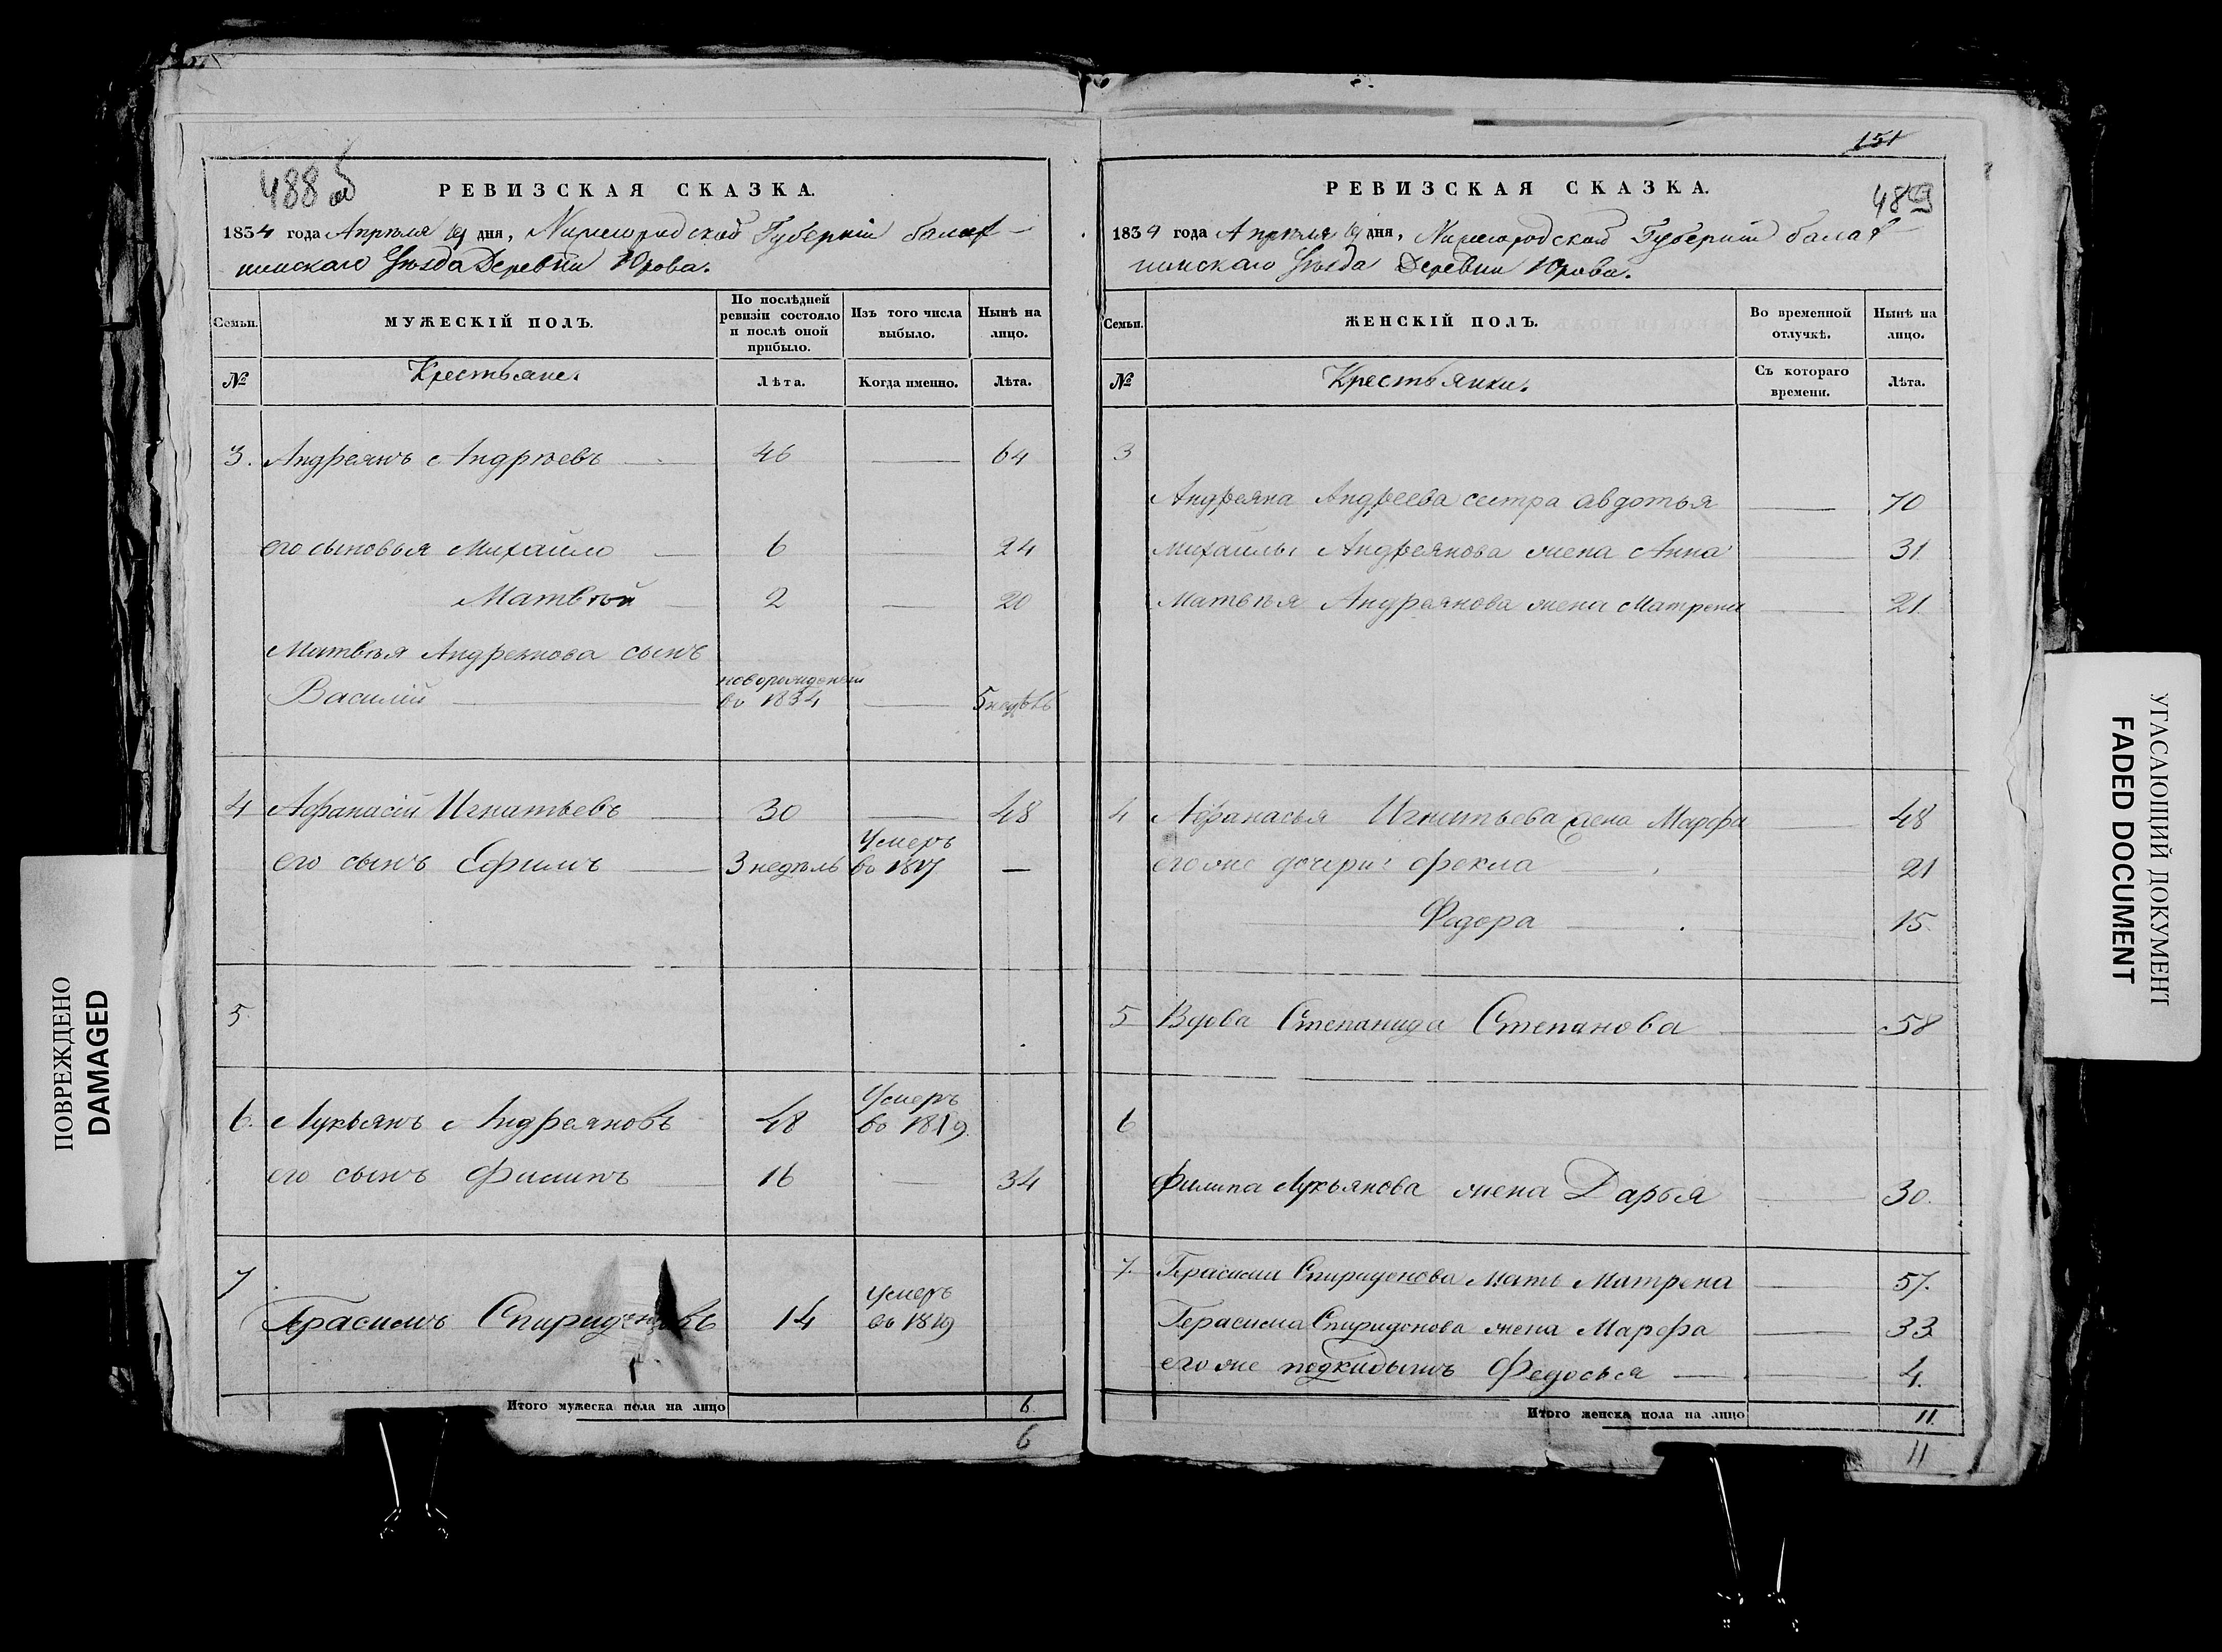 488 об
РЕВИЗСКАЯ СКАЗКА.
1834 года Апрѣля 19 дня, Нижегородской Губерніи балах-
нинскаго Уѣзда Деревни Юрова.
Семьи. МУЖЕСКІЙ ПОЛЪ. По послѣдней ревизіи состояло и послѣ оной прибыло. Изъ того числа выбыло. Нынѣ на лицо.
№ Крестьяне. Лѣта. Когда именно. Лѣта.
3. Андреянъ Андрѣевъ 46 — 64
его сыновья Михайло 6 — 24
Матвѣй 2 — 20
Матвѣя Андреянова сынъ
Василій новорожденный во 1834 — 5 недѣль
4 Афанасій Игнатьевъ 30 — 48
его сынъ Ефимъ 3 недѣль Умеръ во 1817 —
5
6. Лукьянъ Андреяновъ 48 Умеръ во 1819
его сынъ Филипъ 16 — 34
7
Герасимъ Спиридоновъ 14 Умеръ во 1819
Итого мужеска пола на лицо 6
6
151
489
РЕВИЗСКАЯ СКАЗКА.
1834 года Апрѣля 19 дня, Нижегородской Губерніи балах-
нинскаго Уѣзда Деревни Юрова.
Семьи. ЖЕНСКІЙ ПОЛЪ. Во временной отлучкѣ. Нынѣ на лицо.
№ Крестьянки. Съ котораго времени. Лѣта.
3
Андреяна Андреева сестра авдотья — 70
Михайлы Андреянова жена Анна — 31
Матвѣя Андреянова жена Матрена — 21
4 Афанасья Игнатьева жена Марфа — 48
его же дочери: фекла 21
Федора 15
5 Вдова Степанида Степанова — 58
6
Филипа Лукьянова жена Дарья — 30.
7. Герасима Спиридонова мать Матрена — 57.
Герасима Спиридонова жена Марфа — 33
его же подкидышъ Федосья — 4.
Итого женска пола на лицо 11.
11
ПОВРЕЖДЕНО
DAMAGED
УГАСАЮЩИЙ ДОКУМЕНТ
FADED DOCUMENT